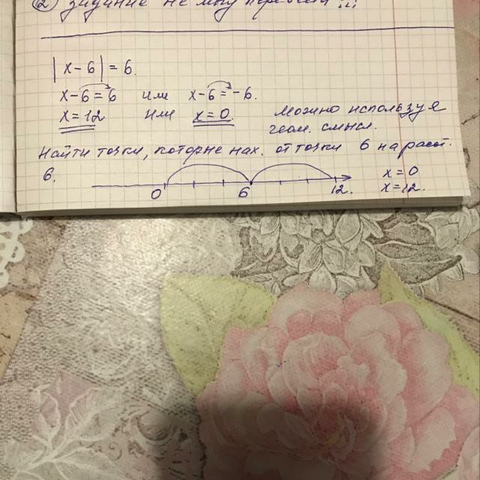 ② Задание не могу перевести !!!
|x-6|=6.
x-6=6 или x-6=-6.
x=12 или x=0. Можно используя
геом. смысл.
Найти точки, которые нах. от точки 6 на расст.
6.
0 6 12.
x=0
x=12.